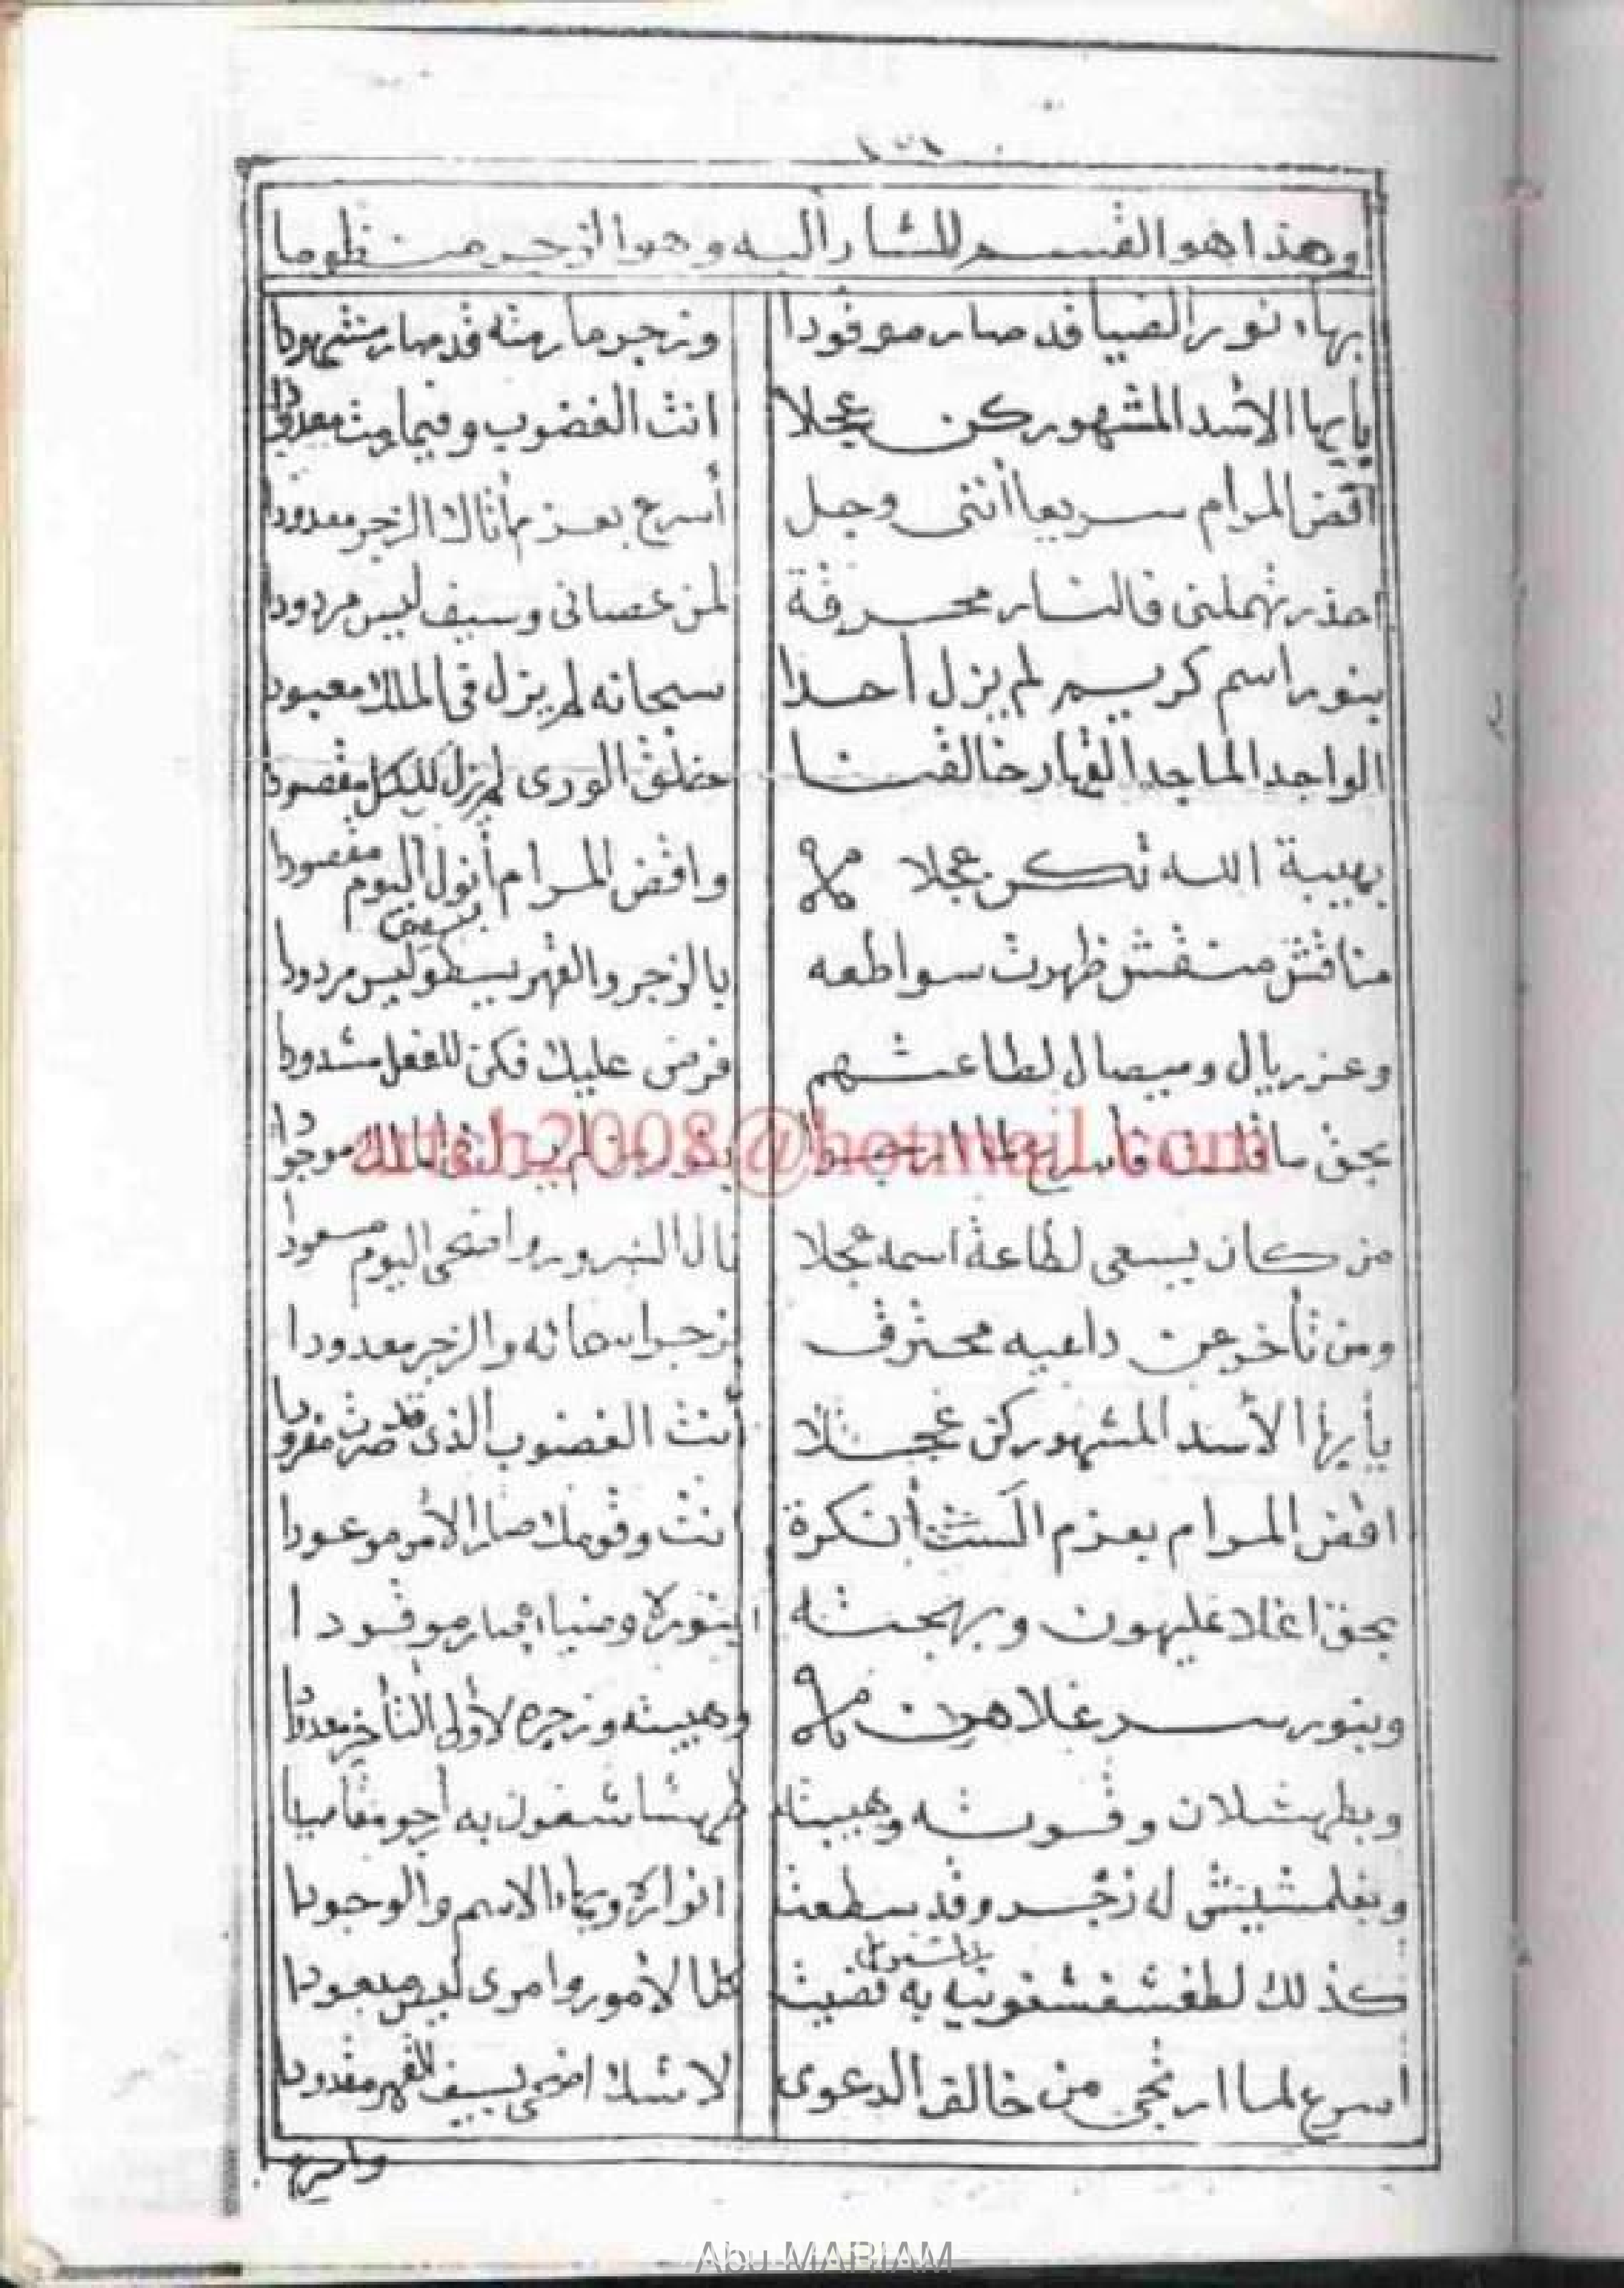 وهذا هو القسم المشار أليه وهو الزجر منظوما
بهاء نور الضيا قد صار موقودا ونزجر مارمته قد صار مشهودا
يأيها الأسد المشهور كن عجلا انت الغضوب وفيما رمت معدودا
أقض المرام سريعا أنثنى وجل أسرع بعزم أتاك الزجر معدودا
احذر تهملنى فالنار محرقة لمن عصانى وسيف ليس مردودا
بنور اسم كريم لم يزل أحدا سبحانه لم يزل فى الملك معبودا
الواجد الماجد القهار خالقنا خلق الورى لم يزل للكل مقصودا
بهيبة الله تكن عجلا واقض المرام أنول اليوم مقصودا
مناقش منقش ظهرت سواطعه بالزجر والقهر يسطو ليس مردودا
وعزريال وميصال لطاعتهم فرض عليك فكن للفعل مشدودا
بحق ما فأسرع لما فى الملك موجودا
من كان يسعى لطاعة اسمه عجلا نال السرور واضحى اليوم مسعودا
ومن تأخر عن داعيه محترق والزجر معدودا
يأيها الأسد المشهور كن عجلا أنت الغضوب الذى قد صرت مفرودا
اقض المرام بعزم انت وقومك صار الأمر موعودا
بحق اغلا عليهون وبهجته بنوره وضياء صار موقودا
وبنور سر غلاهون وهيبته وزجره لأولى التأخر معدودا
وبطهشلان وقوته وهيبته به أرجو مقاصيا
له زجر وقد سطعت انواره وبهاء الاسم والوجودا
كذلك به قضيت كل الأمور وامرى ليس مبعودا
اسرع لما ارتجى من خالق الدعوى لاشك اضحى بسيف القهر مقدودا
artch2008@hotmail.com
Abu MARIAM